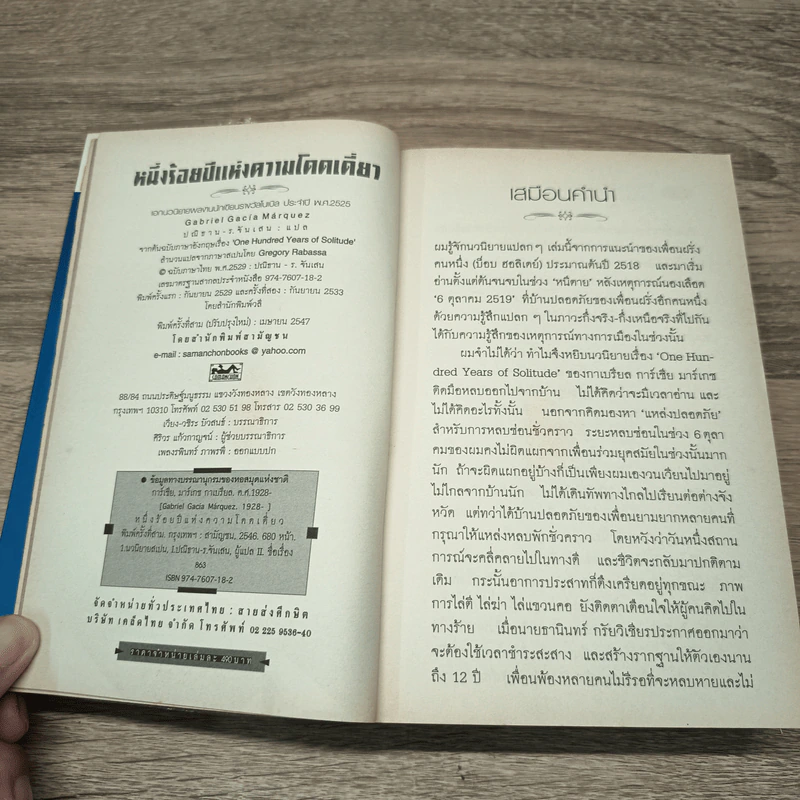 หนึ่งร้อยปีแห่งความโดดเดี่ยว
เอกนวนิยายผลงานนักเขียนรางวัลโนเบิล ประจำปี พ.ศ.2525
Gabriel Gacia Márquez
ปณิธาน - ร. จันเสน : แปล
จากต้นฉบับภาษาอังกฤษเรื่อง 'One Hundred Years of Solitude'
สำนวนแปลจากภาษาสเปนโดย Gregory Rabassa
© ฉบับภาษาไทย พ.ศ.2529 : ปณิธาน - ร. จันเสน
เลขมาตรฐานสากลประจำหนังสือ 974-7607-18-2
พิมพ์ครั้งแรก : กันยายน 2529 และครั้งที่สอง : กันยายน 2533
โดยสำนักพิมพ์วลี
พิมพ์ครั้งที่สาม (ปรับปรุงใหม่) : เมษายน 2547
โดยสำนักพิมพ์สามัญชน
e-mail : samanchonbooks @ yahoo.com
88/84 ถนนประดิษฐ์มนูธรรม แขวงวังทองหลาง เขตวังทองหลาง
กรุงเทพฯ 10310 โทรศัพท์ 02 530 51 98 โทรสาร 02 530 36 99
เวียง-วชิระ บัวสนธ์ : บรรณาธิการ
ศิริวร แก้วกาญจน์ : ผู้ช่วยบรรณาธิการ
เพลงรพินทร์ ภาพรพี : ออกแบบปก
● ข้อมูลทางบรรณานุกรมของหอสมุดแห่งชาติ
การ์เซีย, มาร์เกซ กาเบรียล. ค.ศ.1928-
[Gabriel Gacia Márquez. 1928- ]
หนึ่งร้อยปีแห่งความโดดเดี่ยว
พิมพ์ครั้งที่สาม. กรุงเทพฯ : สามัญชน, 2546. 680 หน้า.
1.นวนิยายสเปน, I.ปณิธาน-ร.จันเสน, ผู้แปล II. ชื่อเรื่อง
863
ISBN 974-7607-18-2
จัดจำหน่ายทั่วประเทศไทย : สายส่งศึกษิต
บริษัท เคล็ดไทย จำกัด โทรศัพท์ 02 225 9536-40
ราคาจำหน่ายเล่มละ 490 บาท
เสมือนคำนำ
ผมรู้จักนวนิยายแปลกๆ เล่มนี้จากการแนะนำของเพื่อนฝรั่ง
คนหนึ่ง (บ๊อบ ฮอลิเดย์) ประมาณต้นปี 2518 และมาเริ่ม
อ่านตั้งแต่ต้นจนจบในช่วง 'หนีตาย' หลังเหตุการณ์นองเลือด
'6 ตุลาคม 2519' ที่บ้านปลอดภัยของเพื่อนฝรั่งอีกคนหนึ่ง
ด้วยความรู้สึกแปลกๆ ในภาวะกึ่งจริง-กึ่งเหนือจริงที่ไปกัน
ได้กับความรู้สึกของเหตุการณ์ทางการเมืองในช่วงนั้น
ผมจำไม่ได้ว่า ทำไมจึงหยิบนวนิยายเรื่อง 'One Hun-
dred Years of Solitude' ของกาเบรียล การ์เซีย มาร์เกซ
ติดมือหลบออกไปจากบ้าน ไม่ได้คิดว่าจะมีเวลาอ่าน และ
ไม่ได้คิดอะไรทั้งนั้น นอกจากคิดมองหา 'แหล่งปลอดภัย'
สำหรับการหลบซ่อนชั่วคราว ระยะหลบซ่อนในช่วง 6 ตุลา
คมของผมคงไม่ผิดแผกจากเพื่อนร่วมยุคสมัยในช่วงนั้นมาก
นัก ถ้าจะผิดแผกอยู่บ้างก็เป็นเพียงผมเองวนเวียนไปมาอยู่
ไม่ไกลจากบ้านนัก ไม่ได้เดินทัพทางไกลไปเรียนต่อต่างจัง
หวัด แต่ทว่าได้บ้านปลอดภัยของเพื่อนยามยากหลายคนที่
กรุณาให้แหล่งหลบพักชั่วคราว โดยหวังว่าวันหนึ่งสถาน
การณ์จะคลี่คลายไปในทางดี และชีวิตจะกลับมาปกติตาม
เดิม กระนั้นอาการประสาทที่ตึงเครียดอยู่ทุกขณะ ภาพ
การไล่ตี ไล่ฆ่า ไล่แขวนคอ ยังติดตาเตือนใจให้ผู้คนคิดไปใน
ทางร้าย เมื่อนายธานินทร์ กรัยวิเชียรประกาศออกมาว่า
จะต้องใช้เวลาชำระสะสาง และสร้างรากฐานให้ตัวเองนาน
ถึง 12 ปี เพื่อนพ้องหลายคนไม่รีรอที่จะหลบหายและไม่